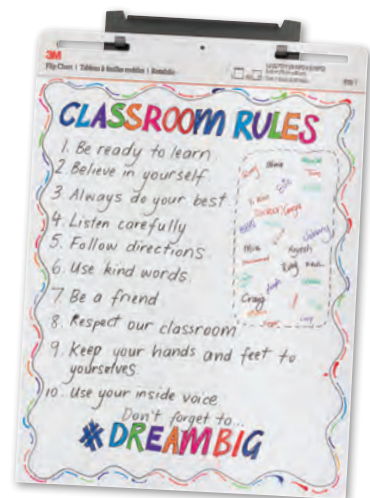 3M
Flip Chart | Tableau à feuilles mobiles | Rotafolio
CLASSROOM RULES
1. Be ready to learn
2. Believe in yourself
3. Always do your best
4. Listen carefully
5. Follow directions
6. Use kind words
7. Be a friend
8. Respect our classroom
9. Keep your hands and feet to
yourselves
10. Use your inside voice
Don't forget to...
#DREAMBIG
Mia
Craig